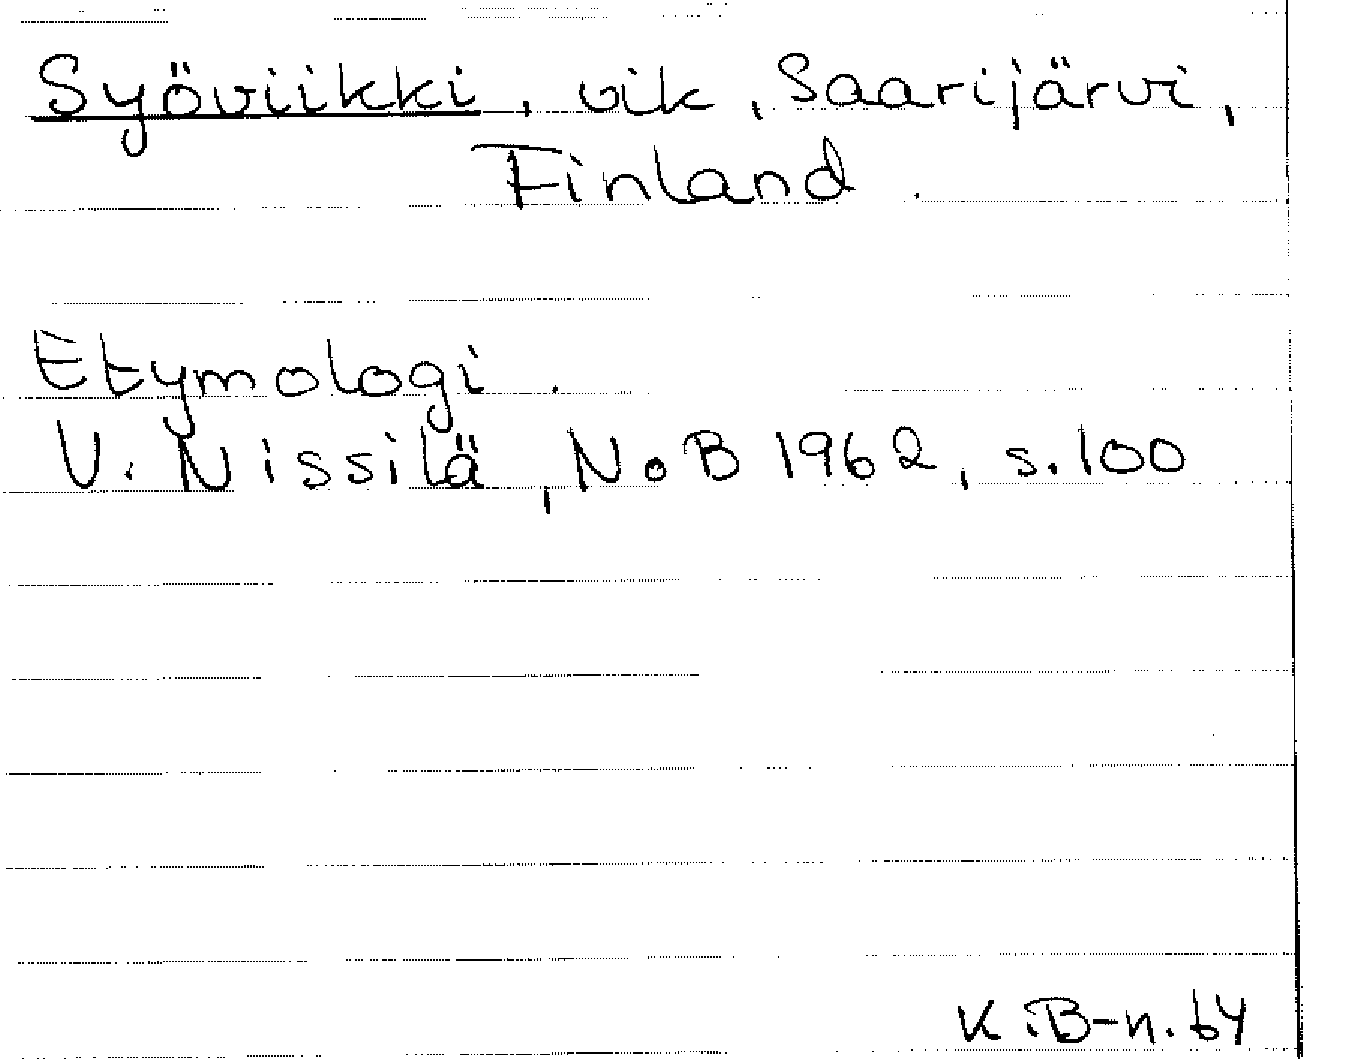 Syöviikki, vik, Saarijärvi,
Finland.
Etymologi.
V. Nissilä, NoB 1962, s.100
K.B-n. 64